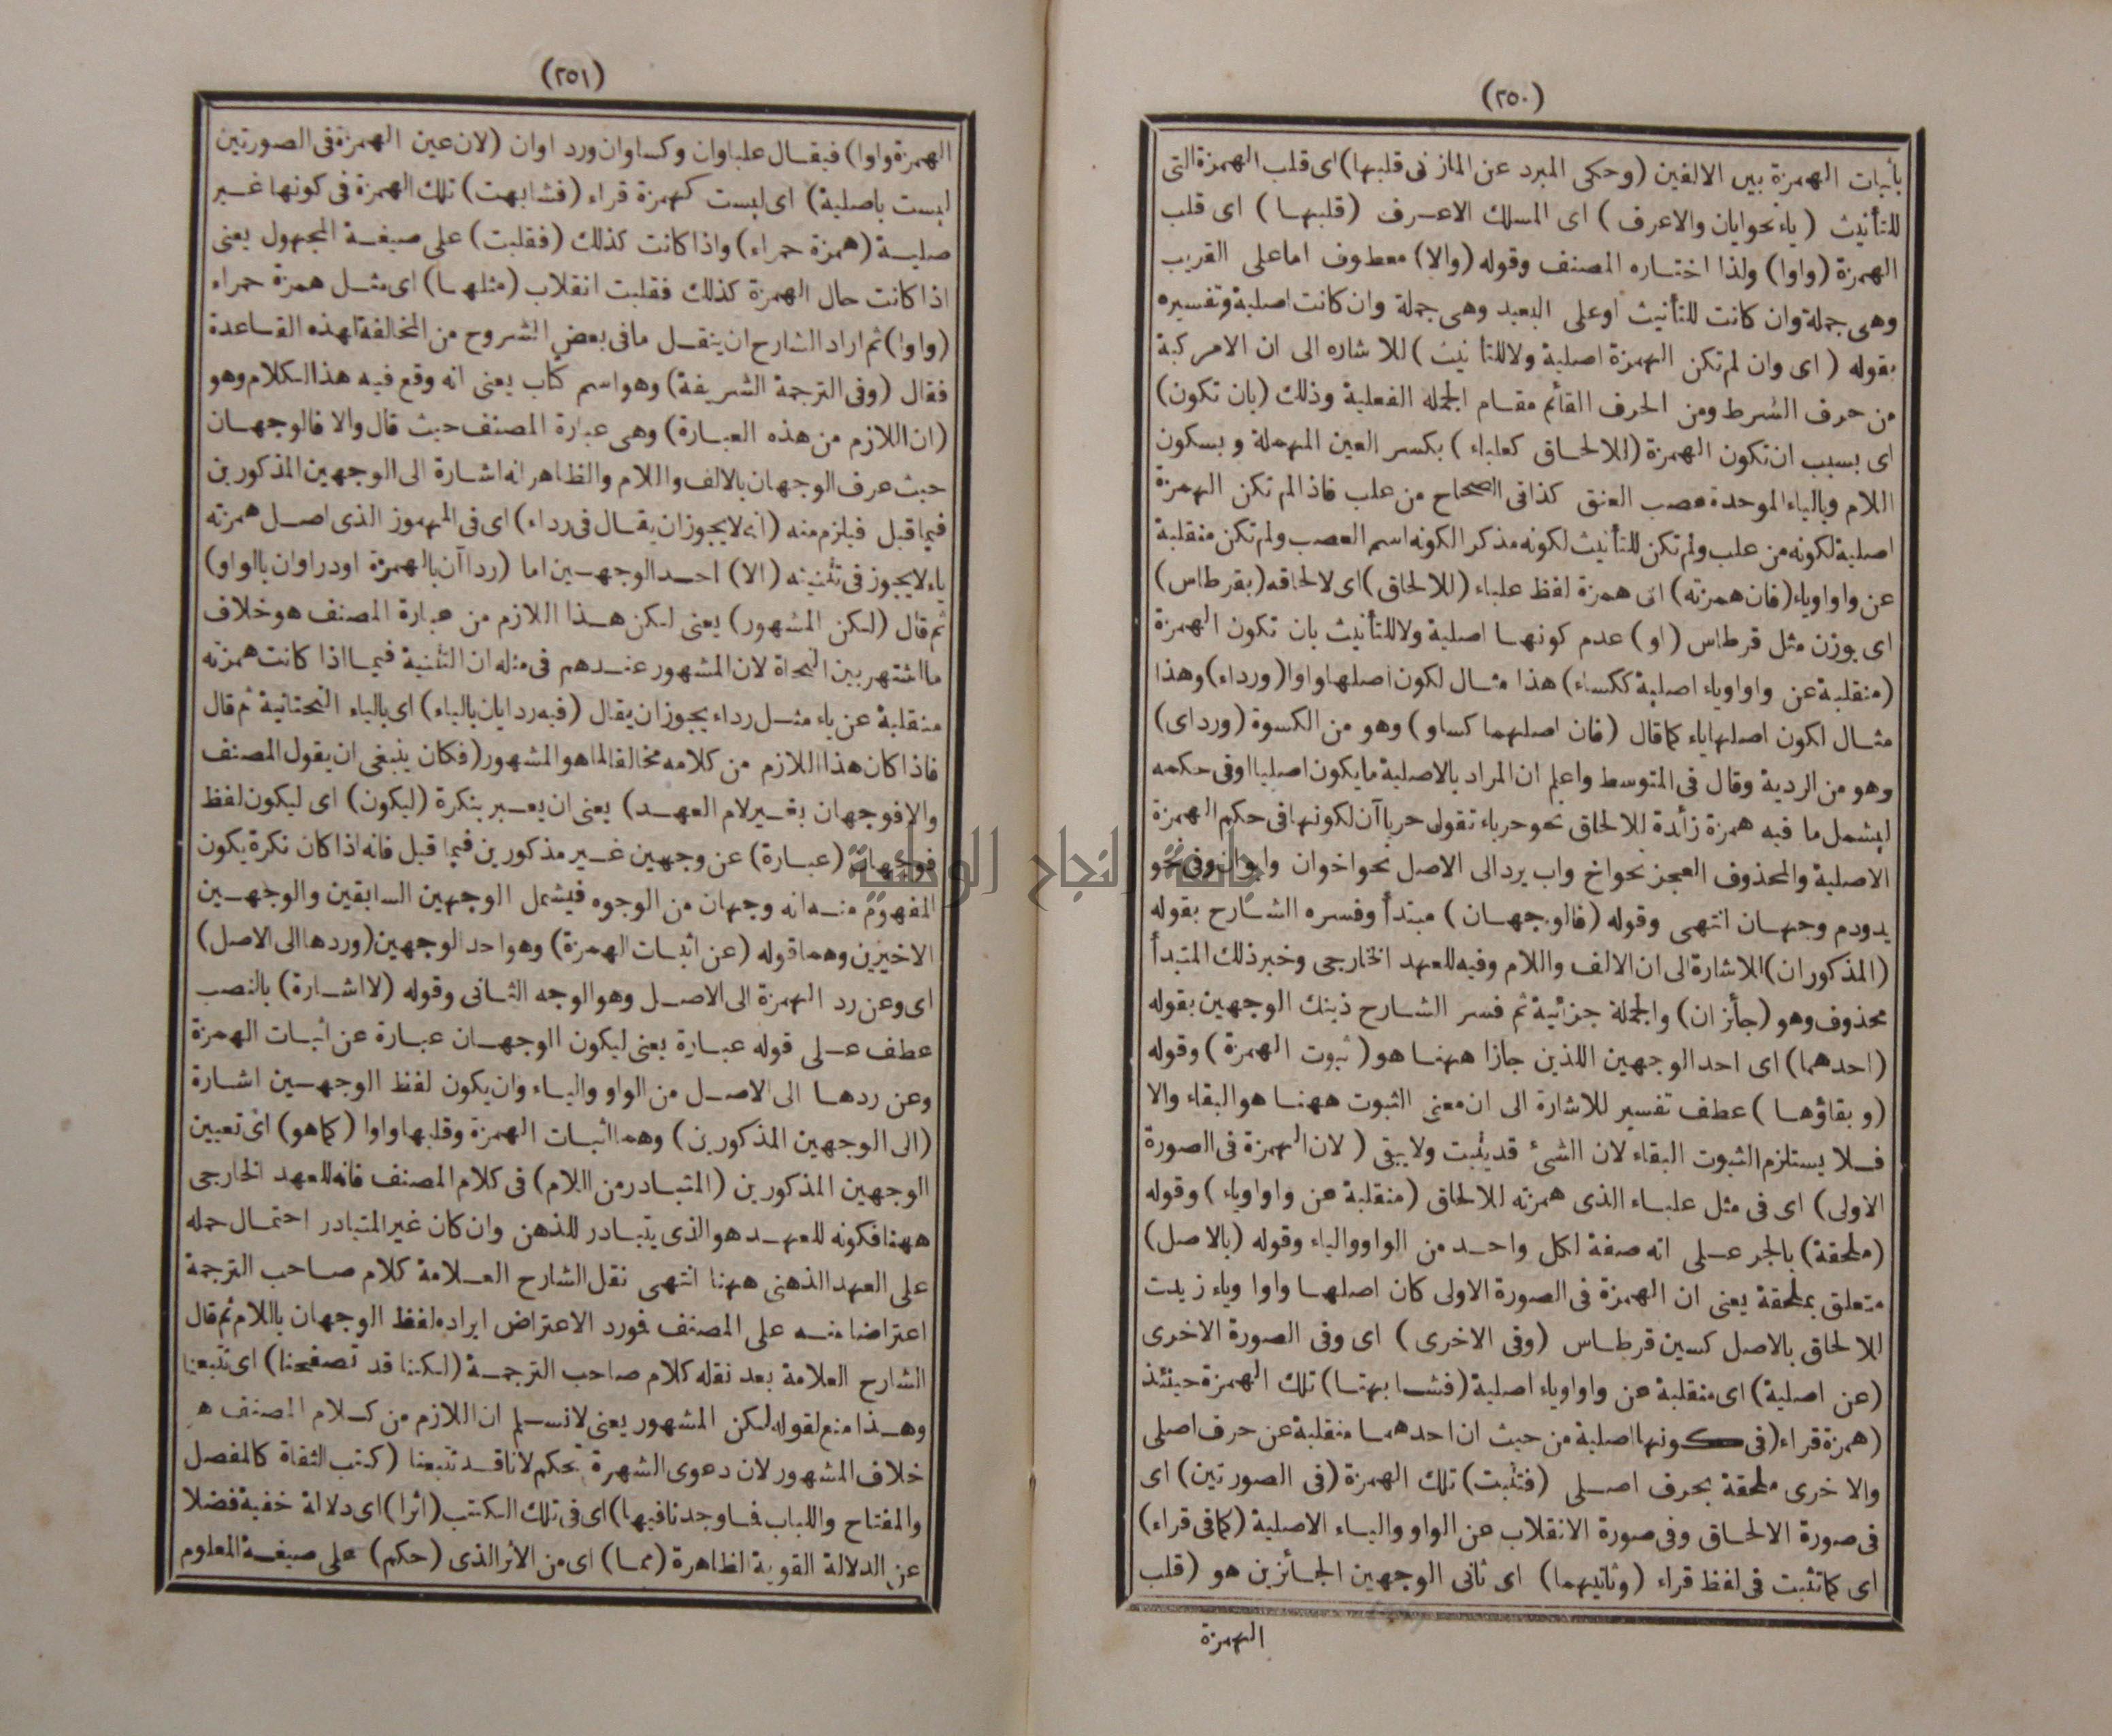 (٢٥٠)
بأثبات الهمزة بين الالفين (وحكى المبرد عن المازنى قلبها) اى قلب الهمزة التى
للتأنيث (ياء نحوايان والاعرف) اى المسلك الاعرف (قلبها) اى قلب
الهمزة (واوا) ولذا اختاره المصنف وقوله (والا) معطوف اما على القريب
وهى جملة وان كانت للتأنيث او على البعيد وهى جملة وان كانت اصلية وتفسيره
بقوله (اى وان لم تكن الهمزة اصلية ولا للتأنيث) للاشاره الى ان الامركبة
من حرف الشرط ومن الحرف القائم مقام الجمله الفعلية وذلك (بان تكون)
اى بسبب ان تكون الهمزة (للالحاق كعلباء) بكسر العين المهملة وبسكون
اللام وبالياء الموحدة عصب العنق كذا فى الصحاح من علب فاذا لم تكن الهمزة
اصلية لكونه من علب ولم تكن للتأنيث لكونه مذكرا لكونه اسم العصب ولم تكن منقلبة
عن واو اوياء (فان همزته) اى همزة لفظ علباء (للالحاق) اى لالحاقه (بقرطاس)
اى بوزن مثل قرطاس (او) عدم كونها اصلية ولا للتأنيث بان تكون الهمزة
(منقلبة عن واو اوياء اصلية ككساء) هذا مثال لكون اصلها واوا (ورداء) وهذا
مثال لكون اصلها ياء كما قال (فان اصلهما كساو) وهو من الكسوة (ورداى)
وهو من الردية وقال فى المتوسط واعلم ان المراد بالاصلية ما يكون اصليا او فى حكمه
ليشمل ما فيه همزة زائدة للالحاق نحو حرباء تقول حرباآن لكونها فى حكم الهمزة
الاصلية والمحذوف العجز نحو اخ واب يرد الى الاصل نحو اخوان وابوان وفى نحو
يدودم وجهان انتهى وقوله (فالوجهان) مبتدأ وفسره الشارح بقوله
(المذكوران) للاشارة الى ان الالف واللام وفيه للعهد الخارجى وخبر ذلك المتبدأ
محذوف وهو (جأئزان) والجملة جزائية ثم فسر الشارح ذينك الوجهين بقوله
(احدهما) اى احد الوجهين اللذين جازا ههنا هو (ثبوت الهمزة) وقوله
(وبقاؤها) عطف تفسير للاشارة الى ان معنى الثبوت ههنا هو البقاء والا
فلا يستلزم الثبوت البقاء لان الشئ قد يثبت ولا يبقى (لان الهمزة فى الصورة
الاولى) اى فى مثل علباء الذى همزته للالحاق (منقلبة عن واو اوياء) وقوله
(ملحقة) بالجر على انه صفة لكل واحد من الواو والياء وقوله (بالاصل)
متعلق بملحقة يعنى ان الهمزة فى الصورة الاولى كان اصلها واوا وياء زيدت
للالحاق بالاصل كسين قرطاس (وفى الاخرى) اى وفى الصورة الاخرى
(عن اصلية) اى منقلبة عن واو اوياء اصلية (فشابهتا) تلك الهمزة حينئذ
(همزة قراء) (فى كونها اصلية من حيث ان احدهما منقلبة عن حرف اصلى
والاخرى ملحقة بحرف اصلى (فتثبت) تلك الهمزة (فى الصورتين) اى
فى صورة الالحاق وفى صورة الانقلاب عن الواو والياء الاصلية (كما فى قراء)
اى كما تثبت فى لفظ قراء (وثانيهما) اى ثانى الوجهين الجائزين هو (قلب
الهمزة
(٢٥١)
الهمزة واوا) فيقال علباوان وكساوان ورداوان (لان عين الهمزة فى الصورتين
ليست باصلية) اى ليست كهمزة قراء (فشابهت) تلك الهمزة فى كونها غير
صلية (همزة حمراء) واذا كانت كذلك (فقلبت) على صيغة المجهول يعنى
اذا كانت حال الهمزة كذلك فقلبت انقلاب (مثلها) اى مثل همزة حمراء
(واوا) ثم اراد الشارح ان ينقل ما فى بعض الشروح من المخالفة لهذه القاعدة
فقال (وفى الترجمة الشريفة) وهو اسم كتاب يعنى انه وقع فيه هذا الكلام وهو
(ان اللازم من هذه العبارة) وهى عبارة المصنف حيث قال والا فالوجهان
حيث عرف الوجهان بالالف واللام والظاهر انه اشارة الى الوجهين المذكورين
فيما قبل فيلزم منه (انه لا يجوز ان يقال فى رداء) اى فى المهموز الذى اصل همزته
ياء لا يجوز فى تثنيته (الا) احد الوجهين اما (رداآن بالهمزة اودراوان بالواو)
ثم قال (لكن المشهور) يعنى لكن هذا اللازم من عبارة المصنف هو خلاف
ما اشتهر بين النحاة لان المشهور عندهم فى مثله ان التثنية فيما اذا كانت همزته
منقلبة عن ياء مثل رداء يجوز ان يقال (فيه ردايان بالياء) اى بالياء التحتانية ثم قال
فاذا كان هذا اللازم من كلامه مخالفا لما هو المشهور (فكان ينبغى ان يقول المصنف
والا فوجهان بغير لام العهد) يعنى ان يعبر بنكرة (ليكون) اى ليكون لفظ
فوجهان (عبارة) عن وجهين غير مذكورين فيما قبل فانه اذا كان نكرة يكون
المفهوم منه انه وجهان من الوجوه فيشمل الوجهين السابقين والوجهين
الاخيرين وهما قوله (عن اثبات الهمزة) وهو احد الوجهين (وردها الى الاصل)
اى وعن رد الهمزة الى الاصل وهو الوجه الثانى وقوله (لا اشارة) بالنصب
عطف على قوله عبارة يعنى ليكون الوجهان عبارة عن اثبات الهمزة
وعن ردها الى الاصل من الواو والياء وان يكون لفظ الوجهين اشارة
(الى الوجهين المذكورين) وهما اثبات الهمزة وقلبها واوا (كما هو) اى تعيين
الوجهين المذكورين (المتبادر من اللام) فى كلام المصنف فانه للعهد الخارجى
ههنا فكونه للعهد هو الذى يتبادر للذهن وان كان غير المتبادر احتمال حمله
على العهد الذهنى ههنا انتهى نقل الشارح العلامة كلام صاحب الترجمة
اعتراضا منه على المصنف فورد الاعتراض ايراده لفظ الوجهان باللام ثم قال
الشارح العلامة بعد نقله كلام صاحب الترجمة (لكننا قد تصفحنا) اى تتبعنا
وهذا منع لقوله لكن المشهور يعنى لا نسلم ان اللازم من كلام المصنف هو
خلاف المشهور لان دعوى الشهرة تحكم لانا قد تتبعنا (كتب الثقاة كالمفصل
والمفتاح واللباب فما وجدنا فيها) اى فى تلك الكتب (اثرا) اى دلالة خفية فضلا
عن الدلالة القوية الظاهرة (مما) اى من الأثر الذى (حكم) على صيغة المعلوم
جامعة النجاح الوطنية